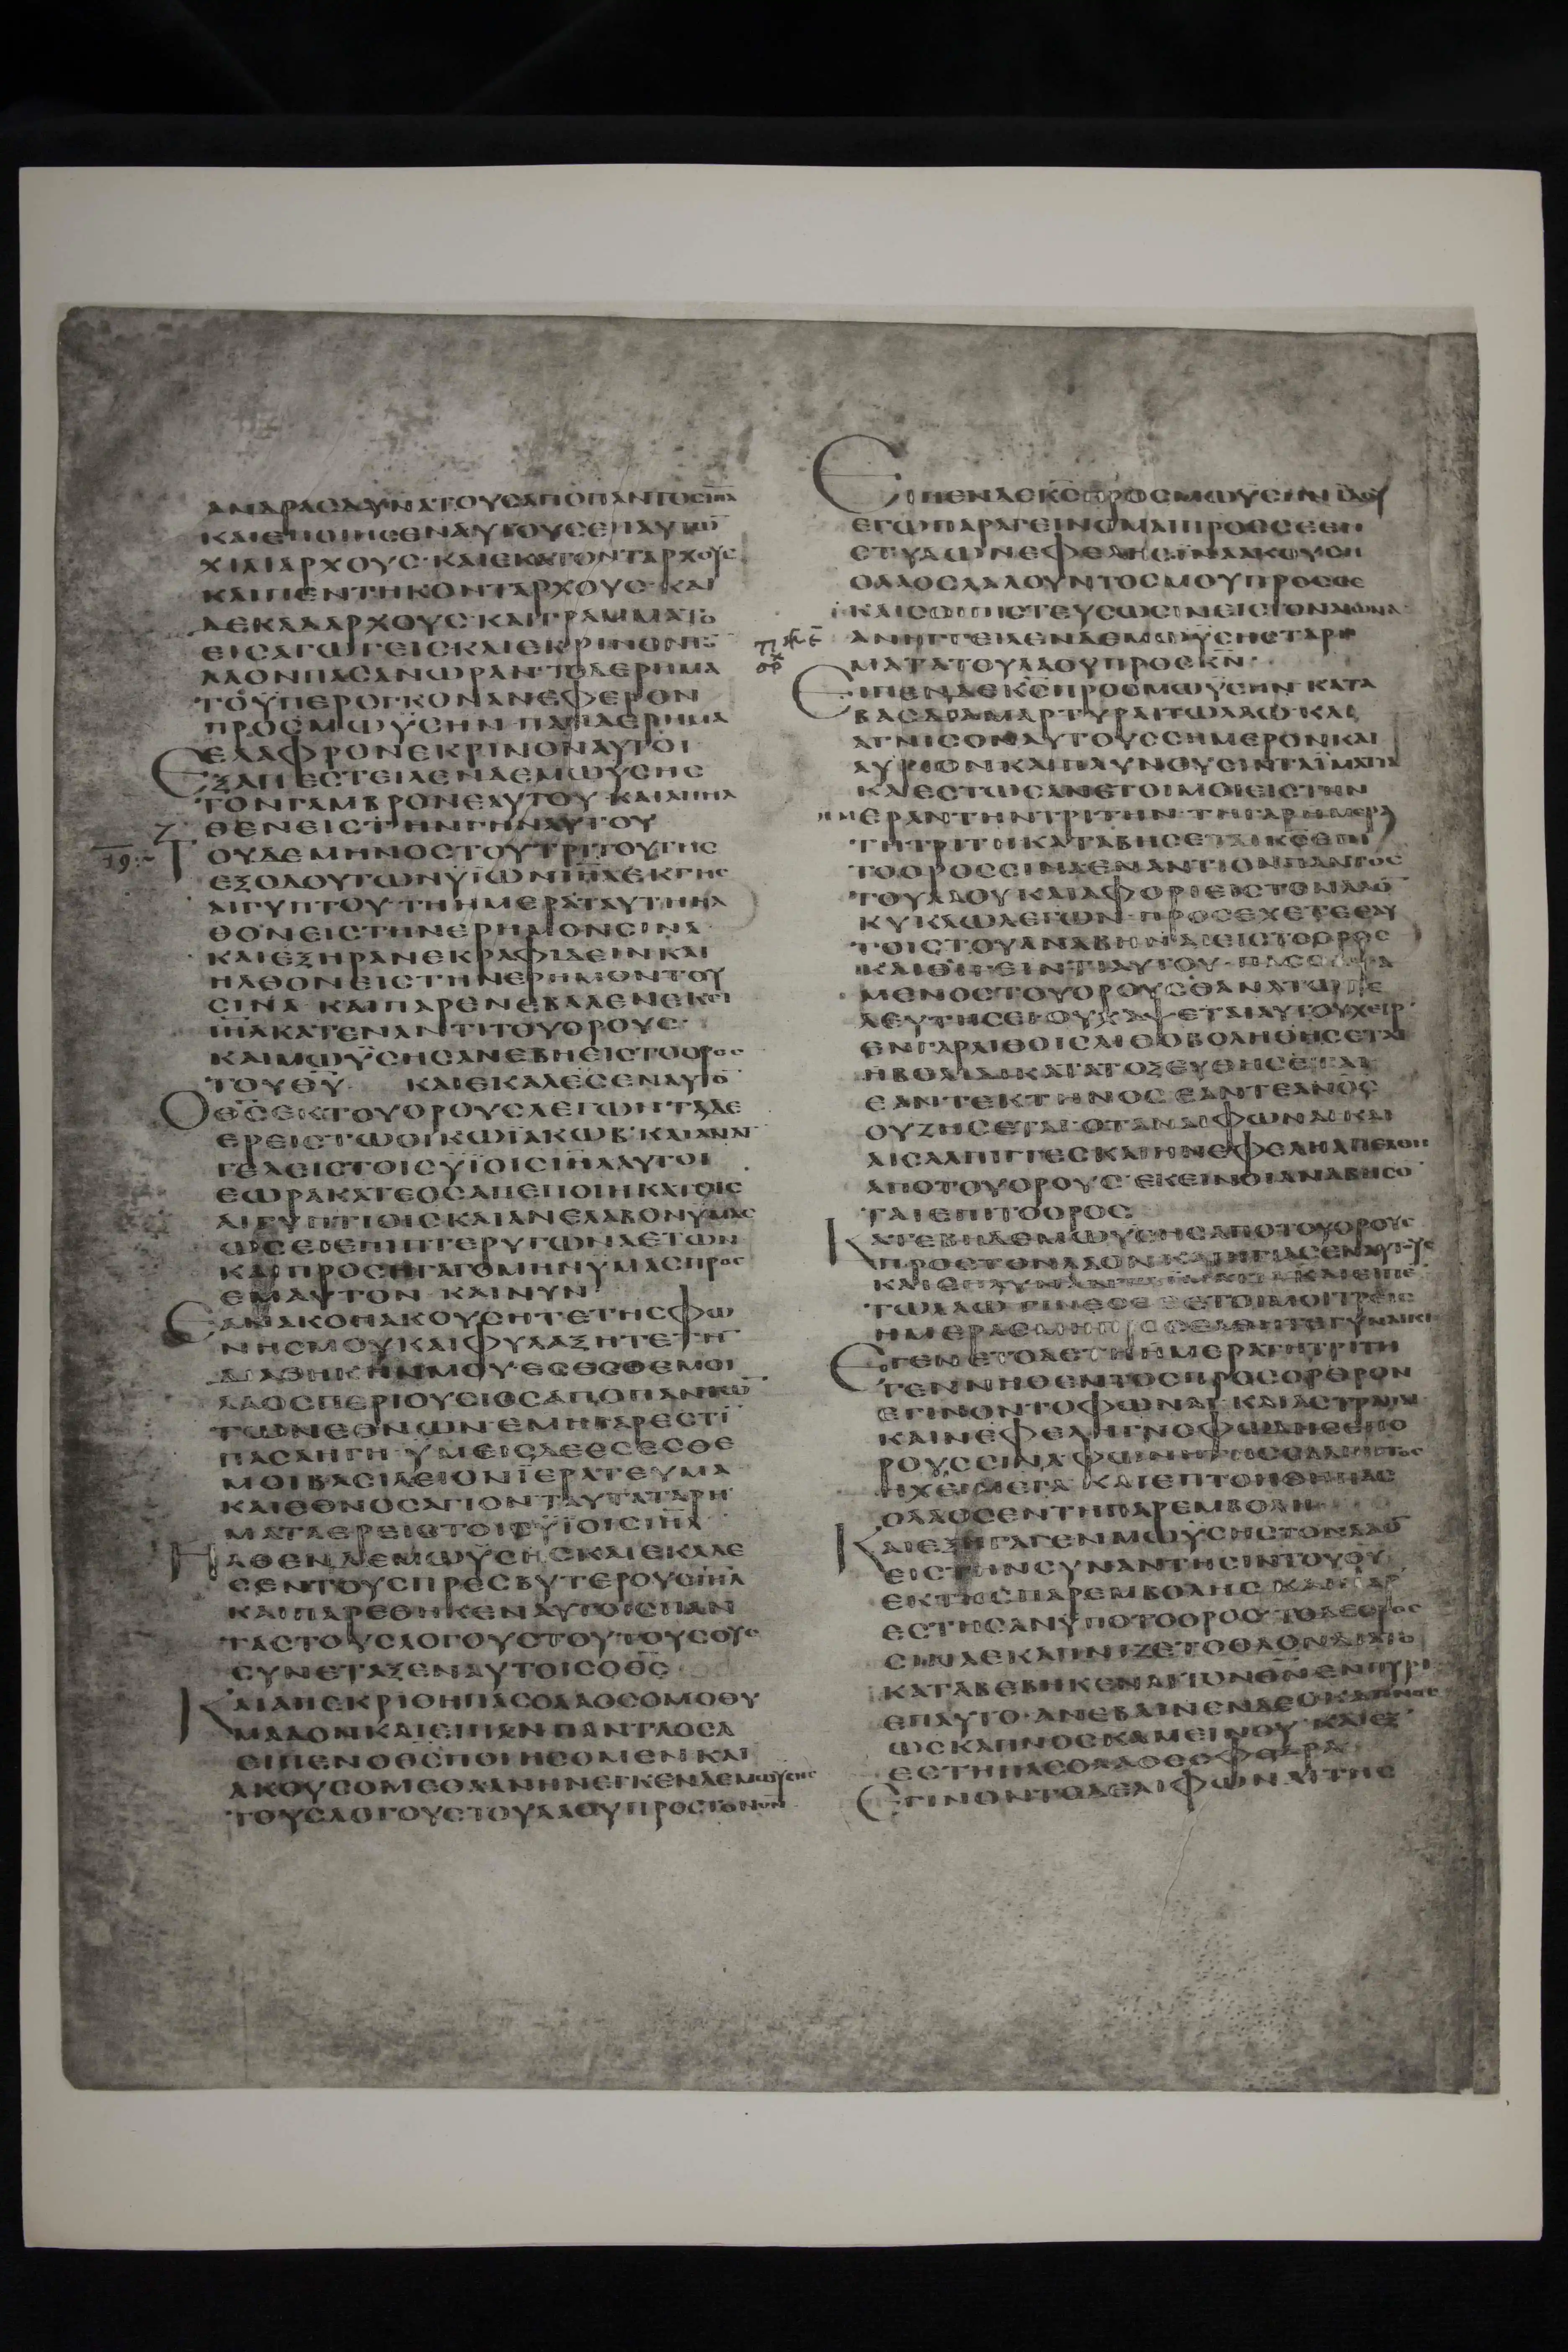 ΑΝΔΡΑΣΔΥΝΑΤΟΥΣΑΠΟΠΑΝΤΟΣΙΗΛ
ΚΑΙΕΠΟΙΗΣΕΝΑΥΤΟΥΣΕΠΑΥΤΩ̅
ΧΙΛΙΑΡΧΟΥΣ·ΚΑΙΕΚΑΤΟΝΤΑΡΧΟΥΣ
ΚΑΙΠΕΝΤΗΚΟΝΤΑΡΧΟΥΣ ΚΑΙ
ΔΕΚΑΔΑΡΧΟΥΣ·ΚΑΙΓΡΑΜΜΑΤΟ
ΕΙΣΑΓΩΓΕΙΣΚΑΙΕΚΡΙΝΟΝ
ΛΑΟΝΠΑΣΑΝΩΡΑΝ·ΤΟΔΕΡΗΜΑ
ΤΟΫΠΕΡΟΓΚΟΝΑΝΕΦΕΡΟΝ
ΠΡΟΣΜΩΫΣΗΝ ΠΑΝΔΕΡΗΜΑ
ΕΛΑΦΡΟΝΕΚΡΙΝΟΝΑΥΤΟΙ
ΕΞΑΠΕΣΤΕΙΛΕΝΔΕΜΩΫΣΗΣ
ΤΟΝΓΑΜΒΡΟΝΕΑΥΤΟΥ ΚΑΙΑΠΗΛ
ΘΕΝΕΙΣΤΗΝΓΗΝΑΥΤΟΥ
ΤΟΥΔΕΜΗΝΟΣΤΟΥΤΡΙΤΟΥΤΗΣ
19
ΕΞΟΔΟΥΤΩΝΫΙΩΝΙΗΛΕΚΓΗΣ
ΑΙΓΥΠΤΟΥ·ΤΗΗΜΕΡΑΤΑΥΤΗΗΛ
ΘΟΝΕΙΣΤΗΝΕΡΗΜΟΝΣΙΝΑ
ΚΑΙΕΞΗΡΑΝΕΚΡΑΦΙΔΕΙΝΚΑΙ
ΗΛΘΟΝΕΙΣΤΗΝΕΡΗΜΟΝΤΟΥ
ΣΙΝΑ ΚΑΙΠΑΡΕΝΕΒΑΛΕΝΕΚΕΙ
ΙΗΛΚΑΤΕΝΑΝΤΙΤΟΥΟΡΟΥΣ
ΚΑΙΜΩΫΣΗΣΑΝΕΒΗΕΙΣΤΟΟΡΟΣ
ΤΟΥΘΥ ΚΑΙΕΚΑΛΕΣΕΝΑΥΤΟ̅
ΟΘΣΕΚΤΟΥΟΡΟΥΣΛΕΓΩΝΤΑΔΕ
ΕΡΕΙΣΤΩΟΙΚΩΪΑΚΩΒ·ΚΑΙΑΝΑΓ
ΓΕΛΕΙΣΤΟΙΣΫΪΟΙΣΙΗΛΑΥΤΟΙ
ΕΩΡΑΚΑΤΕΟΣΑΠΕΠΟΙΗΚΑΤΟΙΣ
ΑΙΓΥΠΤΙΟΙΣΚΑΙΑΝΕΛΑΒΟΝΫΜΑΣ
ΩΣΕΙΕΠΙΠΤΕΡΥΓΩΝΑΕΤΩΝ
ΚΑΙΠΡΟΣΗΓΑΓΟΜΗΝΫΜΑΣΠΡΟΣ
ΕΜΑΥΤΟΝ ΚΑΙΝΥΝ
ΕΑΝΑΚΟΗΑΚΟΥΣΗΤΕΤΗΣΦΩ
ΝΗΣΜΟΥΚΑΙΦΥΛΑΞΗΤΕΤΗ̅
ΔΙΑΘΗΚΗΝΜΟΥ·ΕΣΕΣΘΕΜΟΙ
ΛΑΟΣΠΕΡΙΟΥΣΙΟΣΑΠΟΠΑΝΤΩ̅
ΤΩΝΕΘΝΩΝΕΜΗΓΑΡΕΣΤΙ̅
ΠΑΣΑΗΓΗ·ΫΜΕΙΣΔΕΕΣΕΣΘΕ
ΜΟΙΒΑΣΙΛΕΙΟΝΪΕΡΑΤΕΥΜΑ
ΚΑΙΕΘΝΟΣΑΓΙΟΝΤΑΥΤΑΤΑΡΗ
ΜΑΤΑΕΡΕΙΣΤΟΙΣΫΪΟΙΣΙΗΛ
ΗΛΘΕΝΔΕΜΩΫΣΗΣΚΑΙΕΚΑΛΕ
ΣΕΝΤΟΥΣΠΡΕΣΒΥΤΕΡΟΥΣΙΗΛ
ΚΑΙΠΑΡΕΘΗΚΕΝΑΥΤΟΙΣΠΑΝ
ΤΑΣΤΟΥΣΛΟΓΟΥΣΤΟΥΤΟΥΣΟΥΣ
ΣΥΝΕΤΑΞΕΝΑΥΤΟΙΣΟΘΣ
ΚΑΙΑΠΕΚΡΙΘΗΠΑΣΟΛΑΟΣΟΜΟΘΥ
ΜΑΔΟΝΚΑΙΕΙΠΑΝΠΑΝΤΑΟΣΑ
ΕΙΠΕΝΟΘΣΠΟΙΗΣΟΜΕΝΚΑΙ
ΑΚΟΥΣΟΜΕΘΑΑΝΗΝΕΓΚΕΝΔΕΜΩΫΣΗΣ
ΤΟΥΣΛΟΓΟΥΣΤΟΥΛΑΟΥΠΡΟΣΤΟΝΘΝ
ΕΙΠΕΝΔΕΚΣΠΡΟΣΜΩΫΣΗΝ ΙΔΟΥ
ΕΓΩΠΑΡΑΓΕΙΝΟΜΑΙΠΡΟΣΣΕΕΝ
ΣΤΥΛΩΝΕΦΕΛΗΣΙΝΑΑΚΟΥΣΗ
ΟΛΑΟΣΛΑΛΟΥΝΤΟΣΜΟΥΠΡΟΣΣΕ
ΚΑΙΣΟΙΠΙΣΤΕΥΣΩΣΙΝΕΙΣΤΟΝΑΙΩΝΑ
ΑΝΗΓΓΕΙΛΕΝΔΕΜΩΫΣΗΣΤΑΡΗ
ΜΑΤΑΤΟΥΛΑΟΥΠΡΟΣΚΝ
ΕΙΠΕΝΔΕΚΣΠΡΟΣΜΩΫΣΗΝ ΚΑΤΑ
ΒΑΣΔΙΑΜΑΡΤΥΡΑΙΤΩΛΑΩ·ΚΑΙ
ΑΓΝΙΣΟΝΑΥΤΟΥΣΣΗΜΕΡΟΝΚΑΙ
ΑΥΡΙΟΝΚΑΙΠΛΥΝΟΥΣΙΝΤΑΪΜΑΤΙΑ
ΚΑΙΕΣΤΩΣΑΝΕΤΟΙΜΟΙΕΙΣΤΗΝ
ΗΜΕΡΑΝΤΗΝΤΡΙΤΗΝ·ΤΗΓΑΡΗΜΕΡΑ
ΤΗΤΡΙΤΗΚΑΤΑΒΗΣΕΤΑΙΚΣΕΠΙ
ΤΟΟΡΟΣΣΙΝΑΕΝΑΝΤΙΟΝΠΑΝΤΟΣ
ΤΟΥΛΑΟΥΚΑΙΑΦΟΡΙΕΙΣΤΟΝΛΑΟ̅
ΚΥΚΛΩΛΕΓΩΝ·ΠΡΟΣΕΧΕΤΕΕΑΥ
ΤΟΙΣΤΟΥΑΝΑΒΗΝΑΙΕΙΣΤΟΟΡΟΣ
ΚΑΙΘΙΓΕΙΝΤΙΑΥΤΟΥ·ΠΑΣΟΑΨΑ
ΜΕΝΟΣΤΟΥΟΡΟΥΣΘΑΝΑΤΩΤΕ
ΛΕΥΤΗΣΕΙ·ΟΥΧΑΨΕΤΑΙΑΥΤΟΥΧΕΙΡ
ΕΝΓΑΡΛΙΘΟΙΣΛΙΘΟΒΟΛΗΘΗΣΕΤΑΙ
ΗΒΟΛΙΔΙΚΑΤΑΤΟΞΕΥΘΗΣΕΤΑΙ
ΕΑΝΤΕΚΤΗΝΟΣΕΑΝΤΕΑΝΟΣ
ΟΥΖΗΣΕΤΑΙ·ΟΤΑΝΑΙΦΩΝΑΙΚΑΙ
ΑΙΣΑΛΠΙΓΓΕΣΚΑΙΗΝΕΦΕΛΗΑΠΕΛΘΗ
ΑΠΟΤΟΥΟΡΟΥΣ·ΕΚΕΙΝΟΙΑΝΑΒΗΣΟ̅
ΤΑΙΕΠΙΤΟΟΡΟΣ
ΚΑΤΕΒΗΔΕΜΩΫΣΗΣΑΠΟΤΟΥΟΡΟΥΣ
ΠΡΟΣΤΟΝΛΑΟΝΚΑΙΗΓΙΑΣΕΝΑΥΤΟΥΣ
ΤΩΛΑΩ ΓΙΝΕΣΘΕΕΤΟΙΜΟΙΤΡΕΙΣ
ΗΜΕΡΑΣΜΗΠΡΟΣΕΛΘΗΤΕΓΥΝΑΙΚΙ
ΕΓΕΝΕΤΟΔΕΤΗΗΜΕΡΑΤΗΤΡΙΤΗ
ΓΕΝΝΗΘΕΝΤΟΣΠΡΟΣΟΡΘΡΟΝ
ΕΓΙΝΟΝΤΟΦΩΝΑΙ·ΚΑΙΑΣΤΡΑΠΑΙ
ΚΑΙΝΕΦΕΛΗΓΝΟΦΩΔΗΣΕΠΟ
ΡΟΥΣΣΙΝΑΦΩΝΗΤΗΣΣΑΛΠΙΓΓΟΣ
ΗΧΕΙΜΕΓΑ ΚΑΙΕΠΤΟΗΘΗΠΑΣ
ΟΛΑΟΣΕΝΤΗΠΑΡΕΜΒΟΛΗ
ΚΑΙΕΞΗΓΑΓΕΝΜΩΫΣΗΣΤΟΝΛΑΟ̅
ΕΙΣΤΗΝΣΥΝΑΝΤΗΣΙΝΤΟΥΘΥ
ΕΚΤΗΣΠΑΡΕΜΒΟΛΗΣ ΚΑΙΠΑΡ
ΕΣΤΗΣΑΝΫΠΟΤΟΟΡΟΣ·ΤΟΔΕΟΡΟΣ
ΣΙΝΑΕΚΑΠΝΙΖΕΤΟΟΛΟΝΔΙΑΤΟ
ΚΑΤΑΒΕΒΗΚΕΝΑΙΤΟΝΘΝΕΝΠΥΡΙ
ΕΠΑΥΤΟ·ΑΝΕΒΑΙΝΕΝΔΕΟΚΑΠΝΟΣ
ΩΣΚΑΠΝΟΣΚΑΜΕΙΝΟΥ·ΚΑΙΕΞ
ΕΣΤΗΠΑΣΟΛΑΟΣΣΦΟΔΡΑ
ΕΓΙΝΟΝΤΟΔΕΑΙΦΩΝΑΙΤΗΣ